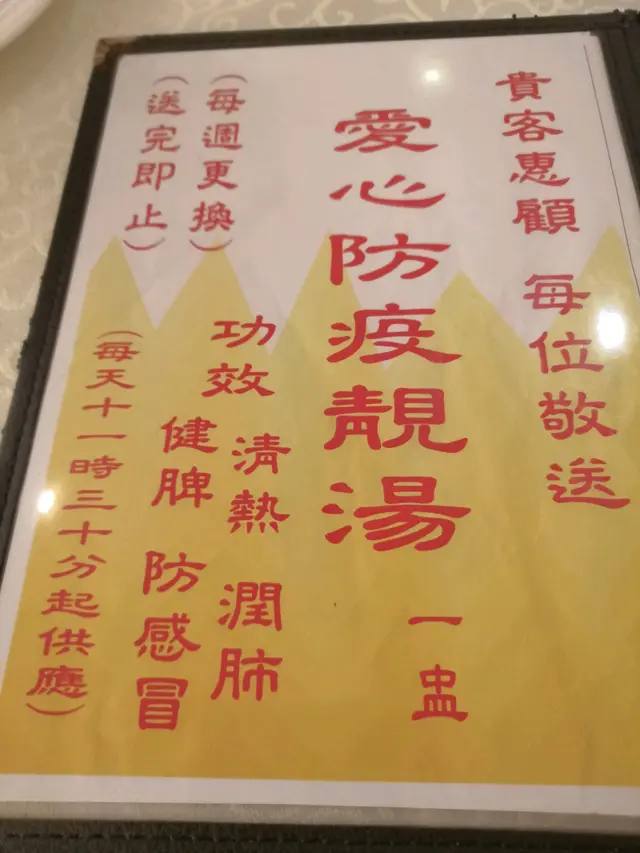 貴客惠顧 每位敬送
愛心防疫靚湯
一盅
功效
清熱 潤肺
健脾 防感冒
(每週更換)
(送完即止)
(每天十一時三十分起供應)